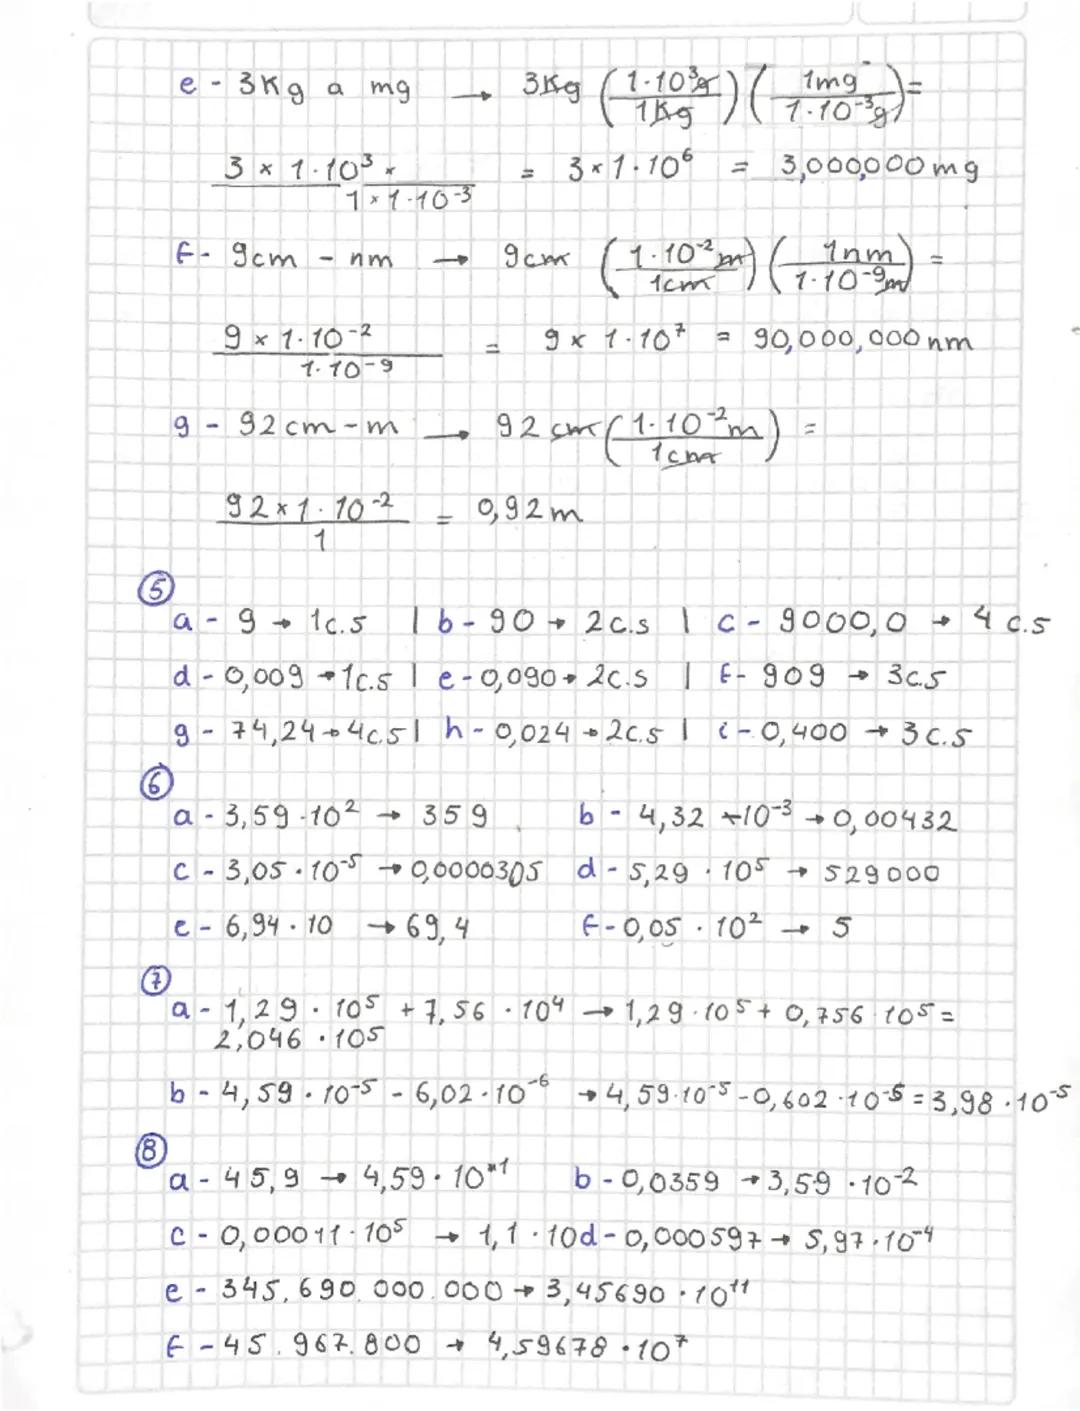 e - 3Kg a mg → 3Kg (1·10³g / 1Kg) (1mg / 1·10⁻³g) =
3 × 1·10³ × / 1 × 1·10⁻³ = 3×1·10⁶ = 3,000,000 mg
f - 9cm - nm → 9cm (1·10⁻²m / 1cm) (1nm / 1·10⁻⁹m) =
9 × 1·10⁻² / 1·10⁻⁹ = 9 × 1·10⁷ = 90,000,000 nm
g - 92cm - m → 92 cm (1·10⁻²m / 1cm) =
92×1·10⁻² / 1 = 0,92m
⑤
a - 9 → 1c.s | b - 90 → 2c.s | c - 9000,0 → 4 c.s
d - 0,009 → 1c.s | e - 0,090 → 2c.s | f - 909 → 3c.s
g - 74,24 → 4c.s | h - 0,024 → 2c.s | i - 0,400 → 3c.s
⑥
a - 3,59·10² → 359 b - 4,32 ·10⁻³ → 0,00432
c - 3,05·10⁻⁵ → 0,0000305 d - 5,29 · 10⁵ → 529000
e - 6,94·10 → 69,4 f - 0,05 · 10² → 5
⑦
a - 1,29 · 10⁵ + 7,56 · 10⁴ → 1,29·10⁵ + 0,756·10⁵ =
2,046 · 10⁵
b - 4,59 · 10⁻⁵ - 6,02·10⁻⁶ → 4,59·10⁻⁵ - 0,602·10⁻⁵ = 3,98·10⁻⁵
⑧
a - 45,9 → 4,59·10⁺¹ b - 0,0359 → 3,59 ·10⁻²
c - 0,00011·10⁵ → 1,1 · 10 d - 0,000597 → 5,97·10⁻⁴
e - 345.690.000.000 → 3,45690 · 10¹¹
f - 45.967.800 → 4,59678 · 10⁷